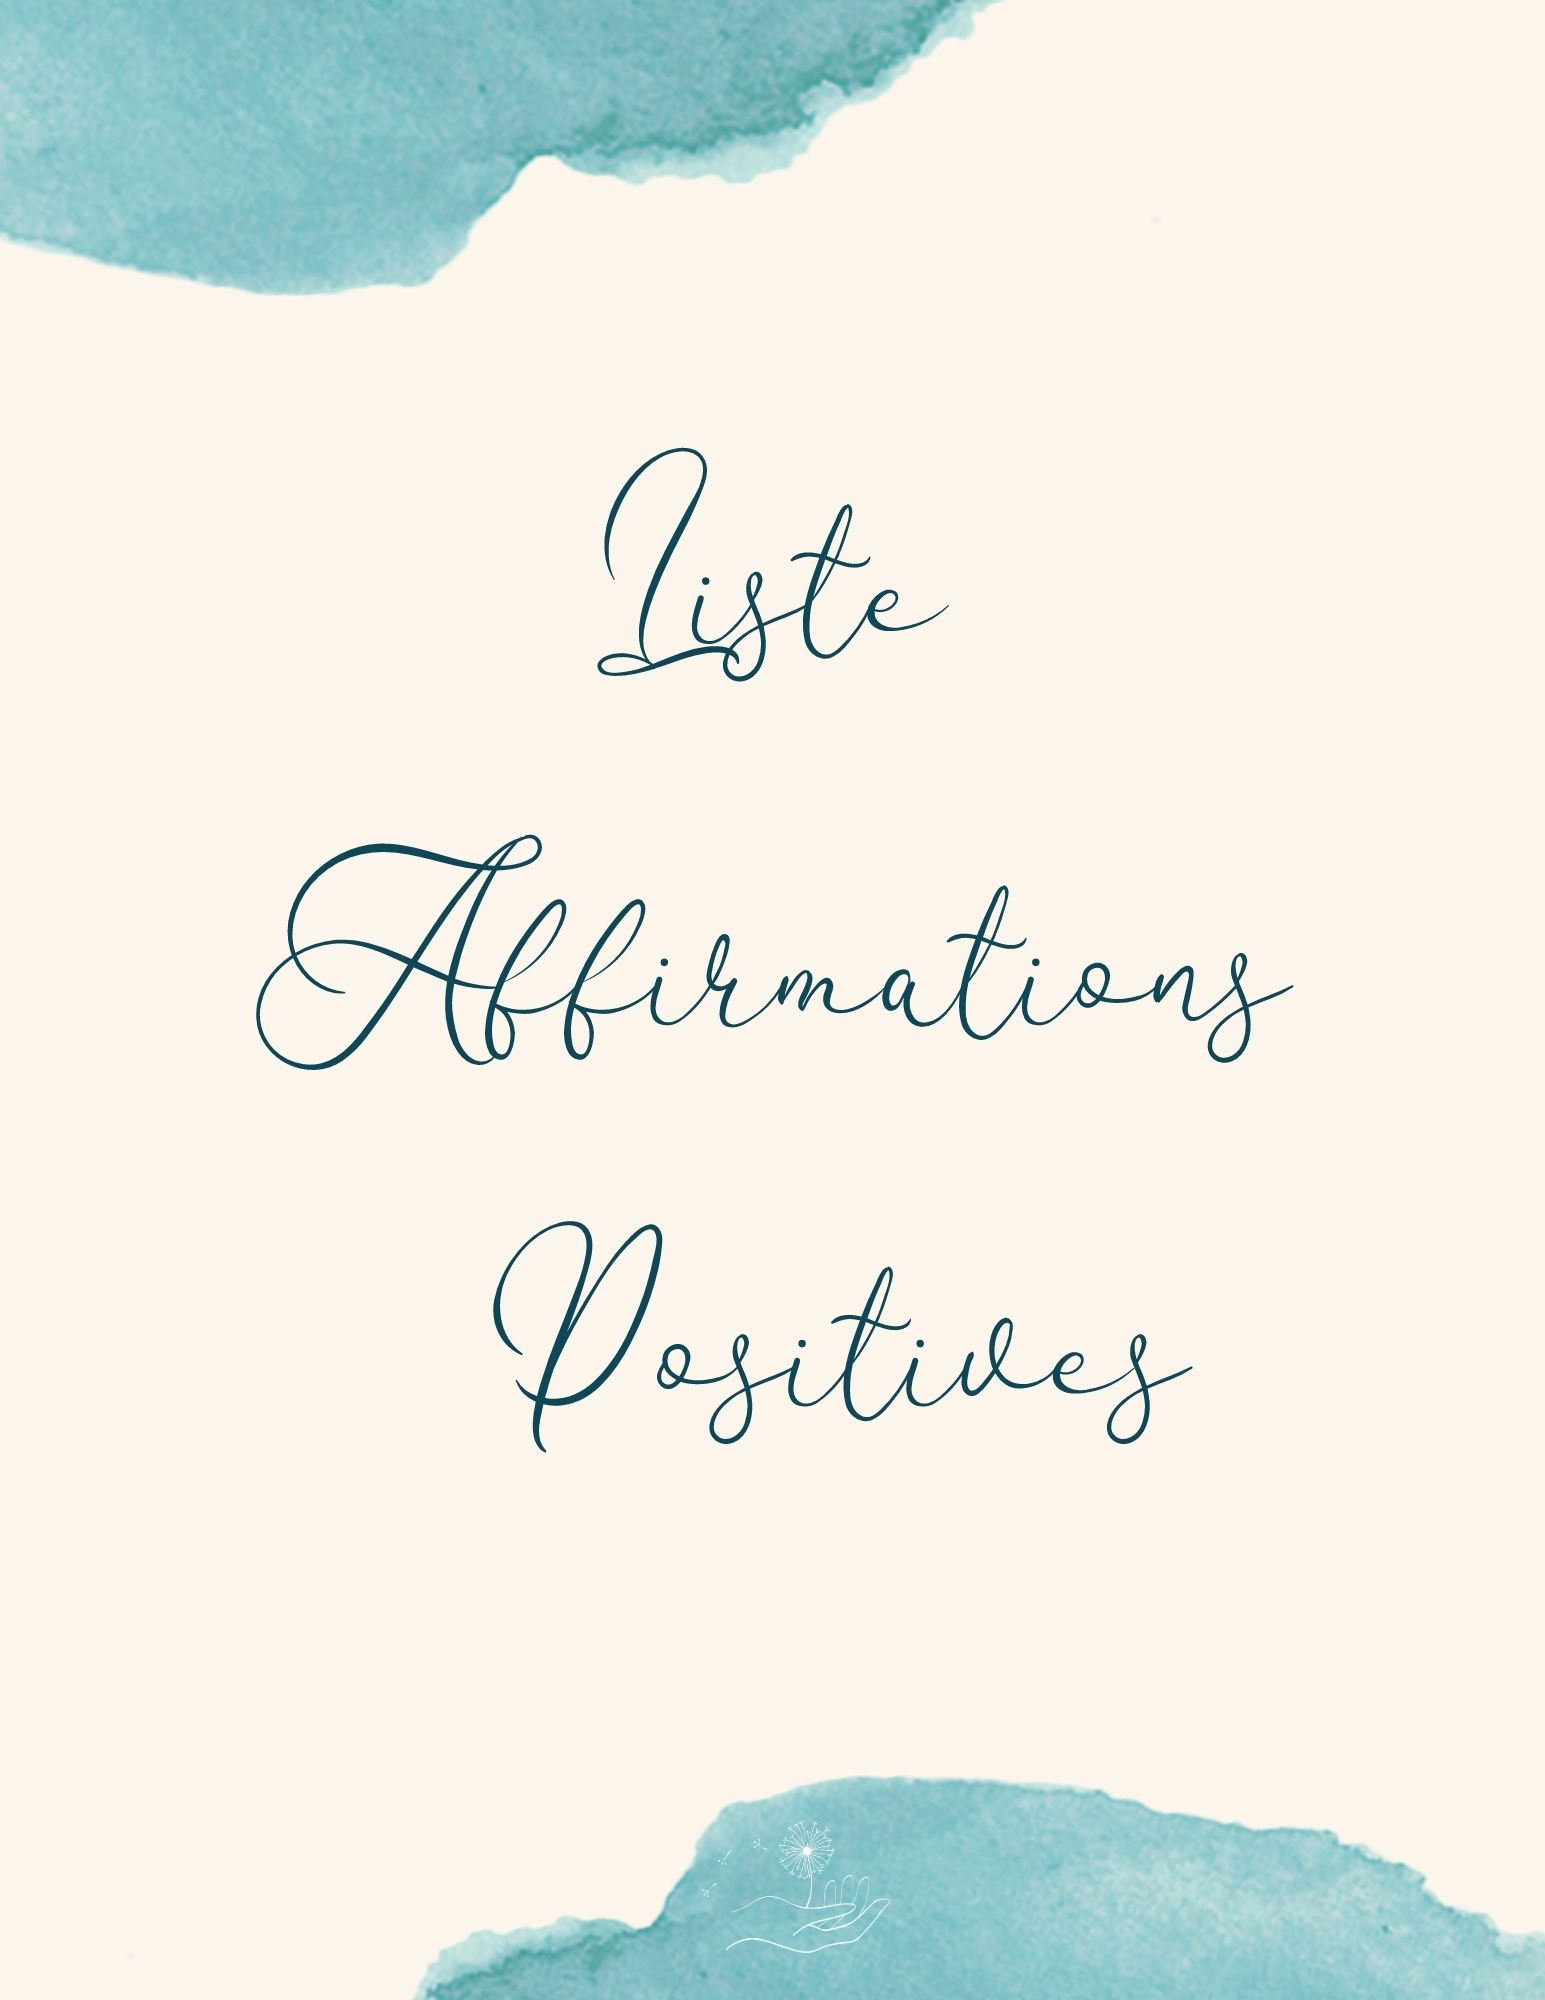 Liste
Affirmations
Positives